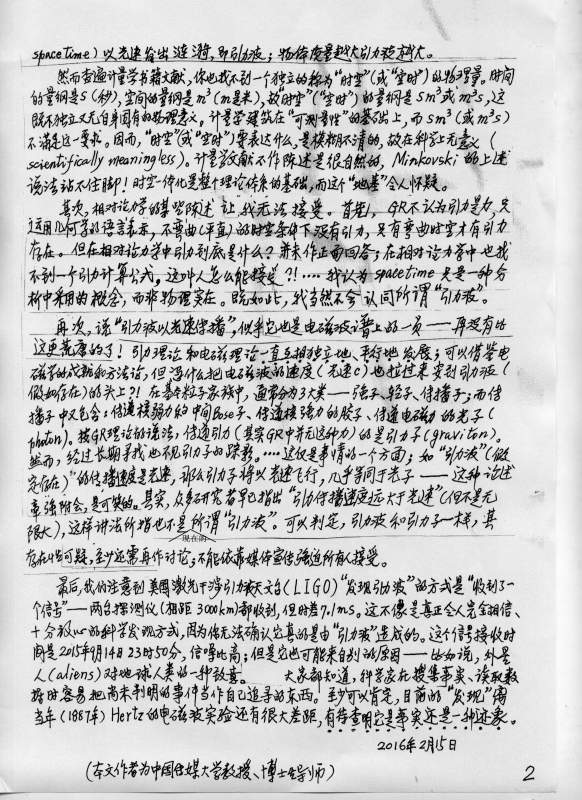 spacetime）以光速发出涟漪，即引力波；物体质量越大引力波越大。
然而查遍计量学书籍文献，你也找不到一个独立的称为“时空”(或“空时”)的物理量。时间
的量纲是S（秒），空间的量纲是m³（m是米），故“时空”(“空时”)的量纲是Sm³或m³s，这
既不独立又无自身固有的物理意义。计量学建筑在“可测量性”的基础上，而Sm³（或m³s）
不满足这一要求。因而，“时空”(或“空时”)要表达什么，是模糊不清的，故在科学上无意义（
scientifically meaningless）。计量学文献不作陈述是很自然的，Minkovski的上述
说法站不住脚！时空一体化是整个理论体系的基础，而这个“地基”令人怀疑。
其次，相对论力学的某些陈述让我无法接受。首先，GR不认为引力是力，只
运用几何学的语言表示，不弯曲(平直)的时空条件下没有引力，只有弯曲时空才有引力
存在。但在相对论力学中引力到底是什么？并未作正面回答；在相对论力学中也找
不到一个引力计算公式，这叫人怎么能接受？！…… 我认为spacetime只是一种分
析中采用的概念，而非物理实在。既如此，我当然不会认同所谓“引力波”。
再次，说“引力波以光速传播”，似乎它也是电磁波谱上的一员——再没有比
这更荒唐的了！引力理论和电磁理论一直互相独立地、平行地发展；可以借鉴电
磁学的成就和方法论，但为什么把电磁波的速度（光速c）也拉过来安到引力波（
假如存在）的头上？！在基本粒子家族中，通常分为3大类——强子、轻子、传播子；而传
播子中又包含：传递弱力的中间Bose子、传递强力的胶子、传递电磁力的光子（
photon）。按GR理论的说法，传递引力（其实GR中并无这种力）的是引力子(graviton)。
然而，经过长期寻找也不见引力子的踪影。…… 这仅是事情的一个方面；如“引力波”（假
定存在）的传播速度是光速，那么引力子将以光速飞行，几乎等同于光子——这种论述
牵强附会，是可笑的。其实，众多研究者早已指出“引力传播速度远大于光速”（但不是无
限大），这样讲法所指也不是现在的所谓“引力波”。可以判定，引力波和引力子一样，其
存在性可疑，至少还需再作讨论；不能依靠媒体宣传强迫所有人接受。
最后，我们注意到美国激光干涉引力波天文台（LIGO）“发现引力波”的方式是“收到了一
个信号”——两台探测仪（相距3000km）都收到，但时差7.1ms。这不像是真正令人完全相信、
十分放心的科学发现方式，因为你无法确认它真的是由“引力波”造成的。这个信号接收时
间是2015年9月14日23时50分，信噪比高；但是它也可能来自别的原因——比如说，外星
人（aliens）对地球人类的一种故意。 大家都知道，科学家在搜集事实、读取数
据时容易把尚未判明的事件当作自己追寻的东西。至少可以肯定，目前的“发现”离
当年（1887年）Hertz的电磁波实验还有很大差距，有待查明它是事实还是一种迹象。
2016年2月15日
（本文作者为中国传媒大学教授、博士生导师）
2